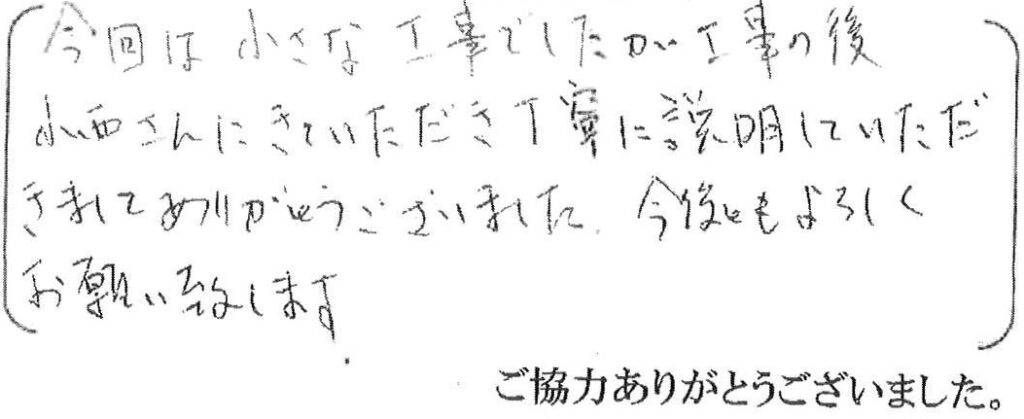 今回は小さな工事でしたが工事の後
小西さんにきていただき丁寧に説明していただ
きましてありがとうございました. 今後ともよろしく
お願い致します.
ご協力ありがとうございました。